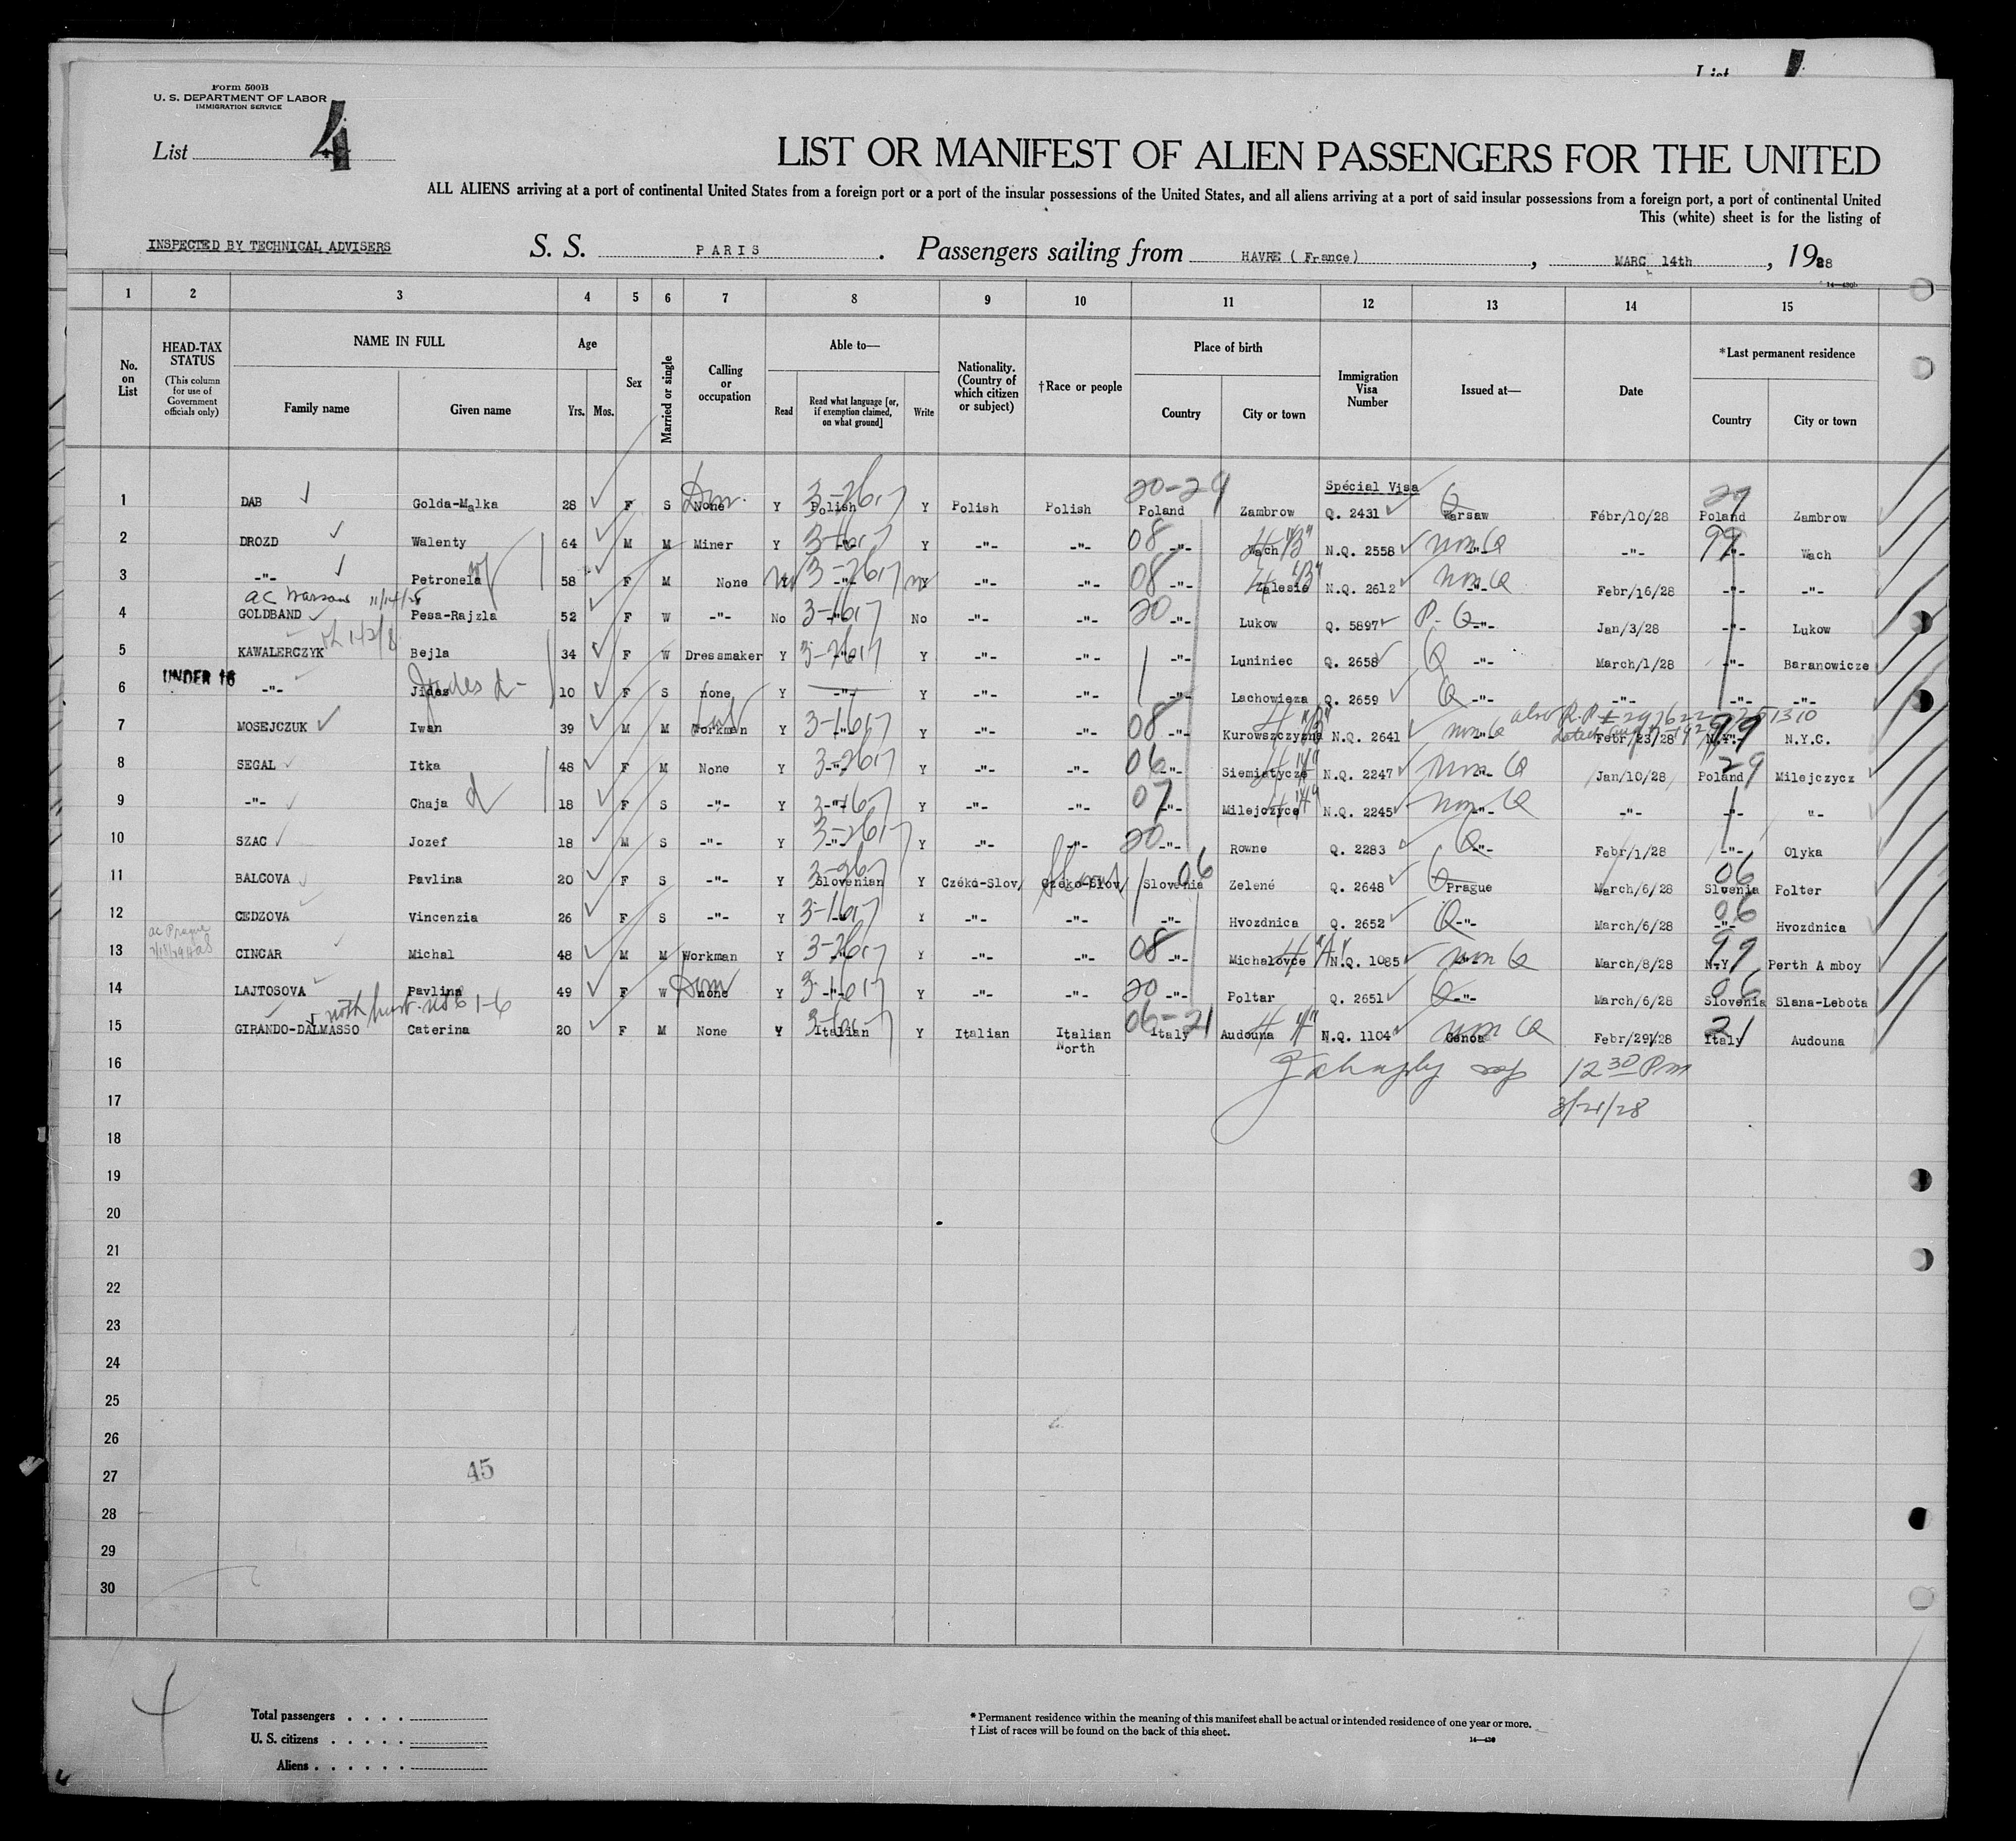 List
Form 500B
U. S. DEPARTMENT OF LABOR
IMMIGRATION SERVICE
List 4
LIST OR MANIFEST OF ALIEN PASSENGERS FOR THE UNITED
ALL ALIENS arriving at a port of continental United States from a foreign port or a port of the insular possessions of the United States, and all aliens arriving at a port of said insular possessions from a foreign port, a port of continental United
This (white) sheet is for the listing of
INSPECTED BY TECHNICAL ADVISERS S. S. PARIS . Passengers sailing from HAVRE ( France) , MARC 14th , 1928
14—430b
1 2 3 4 5 6 7 8 9 10 11 12 13 14 15
No. on List HEAD-TAX STATUS (This column for use of Government officials only) NAME IN FULL Family name Given name Age Yrs. Mos. Sex Married or single Calling or occupation Able to— Read Read what language [or, if exemption claimed, on what ground] Write Nationality. (Country of which citizen or subject) †Race or people Place of birth Country City or town Immigration Visa Number Issued at— Date *Last permanent residence Country City or town
Spécial Visa
1 DAB Golda-Malka 28 F S None Dom. Y 3-2617 Polish Y Polish Polish 20-29 Poland Zambrow Q. 2431 Q Warsaw Fébr/10/28 29 Poland Zambrow
2 DROZD Walenty 64 M M Miner Y -"- Y -"- -"- 08 -"- Wach "B" N.Q. 2558 non Q -"- -"- 99 -"- Wach
3 -"- Petronela 58 F M None 3-2617 -"- -"- -"- 08 -"- Zalesie "B" N.Q. 2612 non Q -"- Febr/16/28 -"- -"-
ac Warsaw
4 GOLDBAND Pesa-Rajzla 52 F W -"- No 3-1617 -"- No -"- -"- 20 -"- Lukow Q. 5897 P. Q -"- Jan/3/28 -"- Lukow
5 KAWALERCZYK Bejla 34 F W Dressmaker Y 3-2617 -"- Y -"- -"- -"- Luniniec Q. 2658 Q -"- March/1/28 -"- Baranowicze
6 UNDER 16 -"- Jides 10 F S none Y -"- Y -"- -"- -"- Lachowieza Q. 2659 Q -"- -"- -"- -"-
7 MOSEJCZUK Iwan 39 M M Workman Y 3-1617 -"- Y -"- -"- 08 -"- Kurowszczyzna "B" N.Q. 2641 non Q -"- also R.P. Febr/23/28 99 N.Y.- N.Y.C.
8 SEGAL Itka 48 F M None Y 3-2617 -"- Y -"- -"- 06 -"- Siemiatycze N.Q. 2247 Non Q -"- Jan/10/28 29 Poland Milejczycz
9 -"- Chaja 18 F S -"- Y 3-1617 -"- Y -"- -"- 07 -"- Milejczyce N.Q. 2245 non Q -"- -"- -"- "-
10 SZAC Jozef 18 M S -"- Y 3-2617 -"- Y -"- -"- 20 -"- Rowne Q. 2283 Q -"- Febr/1/28 -"- Olyka
11 BALCOVA Pavlina 20 F S -"- Y Slovenian Y Czéko-Slov Czéko-Slov Slovak 06 Slovenia Zelené Q. 2648 Q Prague March/6/28 06 Slvenia Polter
12 CEDZOVA Vincenzia 26 F S -"- Y 3-1617 -"- Y -"- -"- -"- Hvozdnica Q. 2652 Q -"- March/6/28 06 -"- Hvozdnica
ac Prague
13 CINCAR Michal 48 M M Workman Y 3-2617 -"- Y -"- -"- 08 -"- Michalovce "A" N.Q. 1085 non Q March/8/28 99 N-Y Perth Amboy
14 LAJTOSOVA Pavlina 49 F W none Dom Y 3-1617 -"- Y -"- -"- 20 -"- Poltar Q. 2651 Q -"- March/6/28 06 Slovenia Slana-Lebota
15 GIRANDO-DALMASSO Caterina 20 F M None Y Italian Y Italian Italian North 06-21 Italy Audouna N.Q. 1104 non Q Genoa Febr/29/28 21 Italy Audouna
16 12 30 P m
17 3/21/28
18
19
20
21
22
23
24
25
26
27 45
28
29
30
Total passengers . . . .
U. S. citizens . . . . .
Aliens . . . . . .
* Permanent residence within the meaning of this manifest shall be actual or intended residence of one year or more.
† List of races will be found on the back of this sheet.
14—430